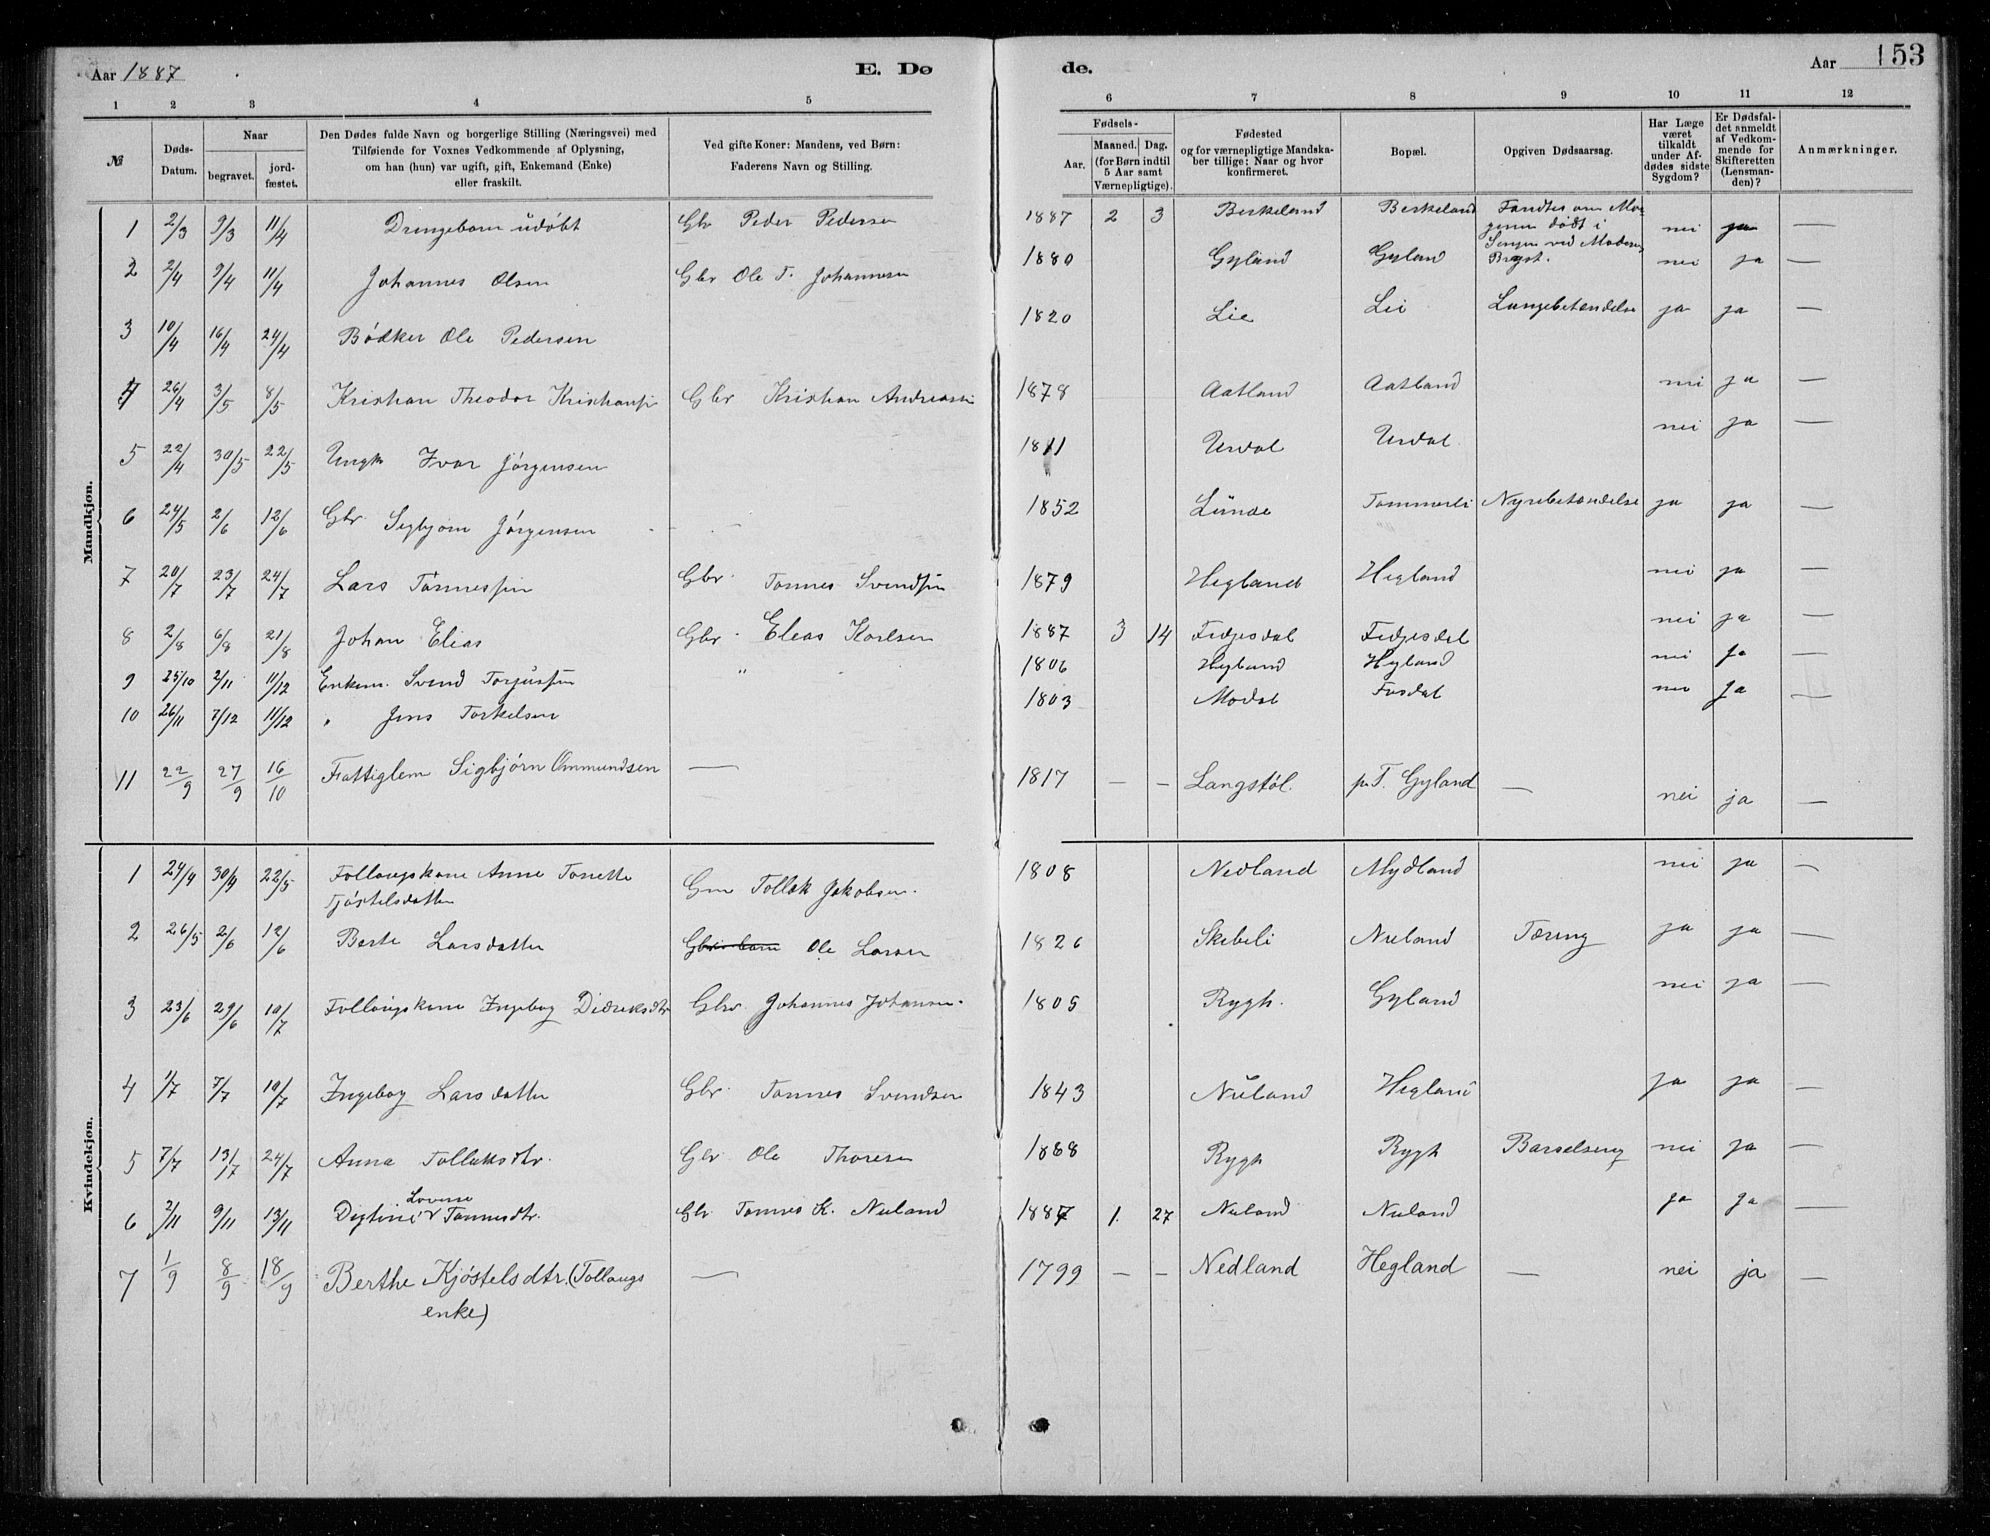 Aar 1887 E. Dø de. Aar 153
1 2 3 4 5 6 7 8 9 10 11 12
№
Døds-Datum.
Naar
begravet.
jord-fæstet.
Den Dødes fulde Navn og borgerlige Stilling (Næringsvei) med
Tilføiende for Voxnes Vedkommende af Oplysning,
om han (hun) var ugift, gift, Enkemand (Enke)
eller fraskilt.
Ved gifte Koner: Mandens, ved Børn:
Faderens Navn og Stilling.
Fødsels-
Aar.
Maaned. Dag.
(for Børn indtil
5 Aar samt
Værnepligtige).
Fødested
og for værnepligtige Mandska-
ber tillige: Naar og hvor
konfirmeret.
Bopæl.
Opgiven Dødsaarsag.
Har Læge
været
tilkaldt
under Af-
dødes sidste
Sygdom?
Er Dødsfal-
det anmeldt
af Vedkom-
mende for
Skifteretten
(Lensman-
den)?
Anmærkninger.
Mandkjøn.
1 2/3 9/3 11/4 Drengebarn udøbt Gbr Peder Pedersen 1887 2 3 Birkeland Birkeland Fandtes om Mor-
genen dødt i
Sengen ved Moderens
Bryst. nei ja —
2 2/4 9/4 11/4 Johannes Olsen Gbr Ole T. Johannesen 1880 Gyland Gyland nei ja —
3 10/4 16/4 24/4 Bødker Ole Pedersen 1820 Lie Lie Lungebetændelse ja ja —
4 26/4 3/5 8/5 Kristian Theodor Kristiansen Gbr Kristian Andreasen 1878 Aatland Aatland nei ja —
5 22/4 30/5 22/5 Ungk Ivar Jørgensen 1811 Urdal Urdal nei ja —
6 24/5 2/6 12/6 Gbr. Sigbjørn Jørgensen — 1852 Lunde Tommerli Nyrebetændelse ja ja —
7 20/7 23/7 24/7 Lars Tønnessen Gbr. Tønnes Svendsen 1879 Hegland Hegland nei ja —
8 2/8 6/8 21/8 Johan Elias Gbr. Elias Karlsen 1887 3 14 Fidjesdal Fidjesdal nei ja —
9 25/10 2/11 11/12 Enkem. Svend Torjussen " 1806 Hegland Hegland nei ja —
10 26/11 7/12 11/12 " Jens Torkelsen 1803 Modal Fosdal nei ja —
11 22/9 27/9 16/10 Fattiglem Sigbjørn Ommundsen — 1817 — — Langstøl. p.T. Gyland — nei ja —
Kvindekjøn.
1 24/4 30/4 22/5 Follougskone Anne Tonette
Tjøstelsdatter Gm Tollak Jakobsen. 1808 Nedland Mydland nei ja —
2 26/5 2/6 12/6 Berte Larsdatter Ole Larsen 1826 Skibeli Nuland Tæring ja ja —
3 23/6 29/6 10/7 Follougskone Ingebog Didriksdtr Gbr. Johannes Johansen. 1805 Rygh. Gyland nei ja —
4 1/7 7/7 10/7 Ingebog Larsdatter Gbr. Tønnes Svendsen 1843 Nuland Hegland ja ja —
5 7/7 13/7 24/7 Anna Tollaksdtr. Gbr Ole Thoresen 1868 Rygh Rygh Barselseng nei ja —
6 2/11 9/11 13/11 Lovise Tønnesdtr. Gbr Tønnes K. Nuland 1887 1. 27 Nuland Nuland ja ja —
7 1/9 8/9 18/9 Berthe Kjøstelsdtr. (Tollougs
enke) — 1799 — — Nedland Hegland — nei ja —